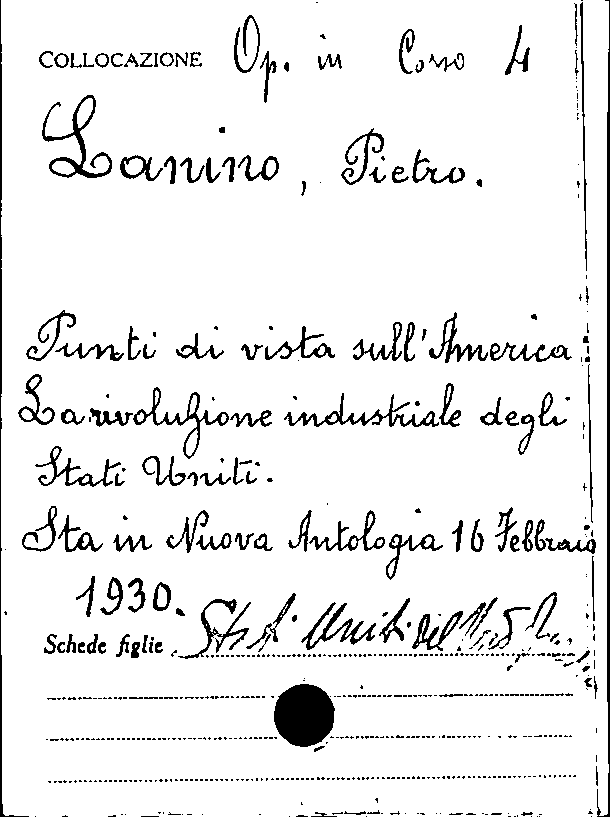 COLLOCAZIONE Op. in Corso 4
Lanino, Pietro.
Punti di vista sull'America
La rivoluzione industriale degli
Stati Uniti.
Sta in Nuova Antologia 16 Febbraio
1930.
Schede figlie Stati Uniti del Nord